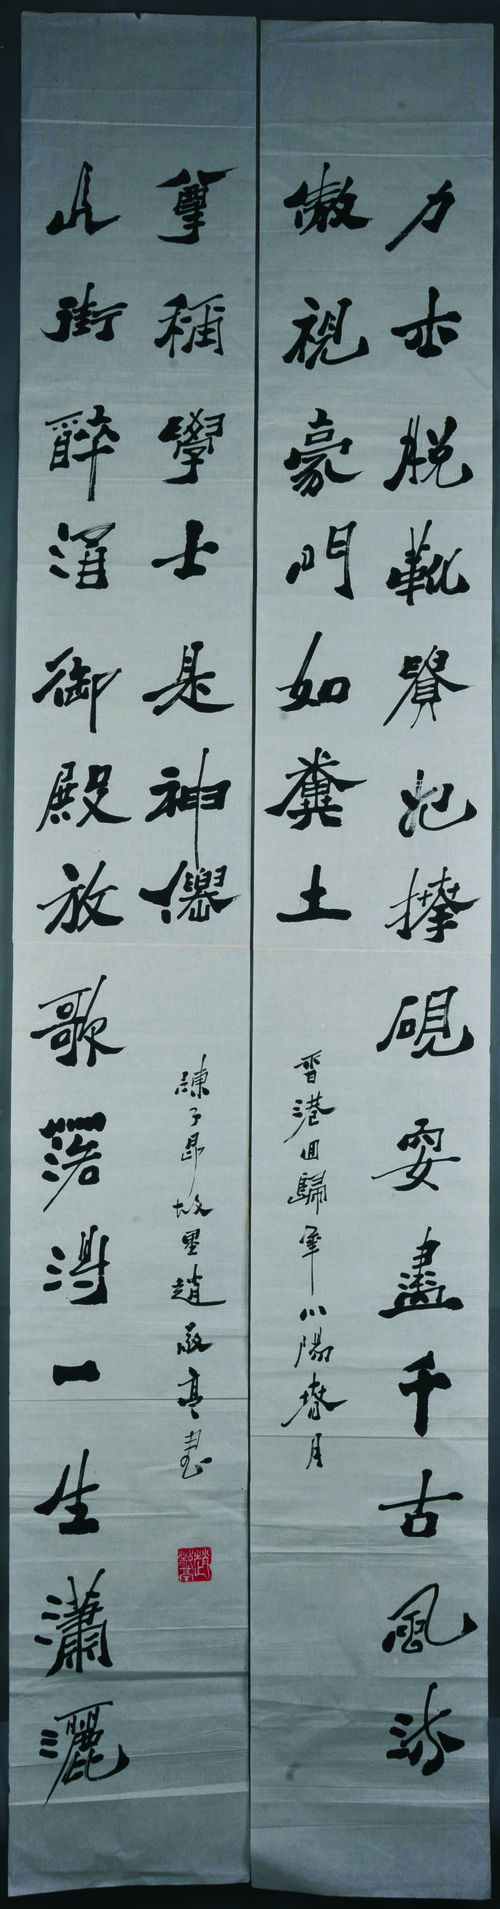 力士脫靴賢妃捧硯耍盡千古風流
傲視豪門如糞土
香港回歸年小陽春月
此街醉酒御殿放歌落得一生瀟灑
尊稱學士是神僊
陳子昂故里趙敬亭書